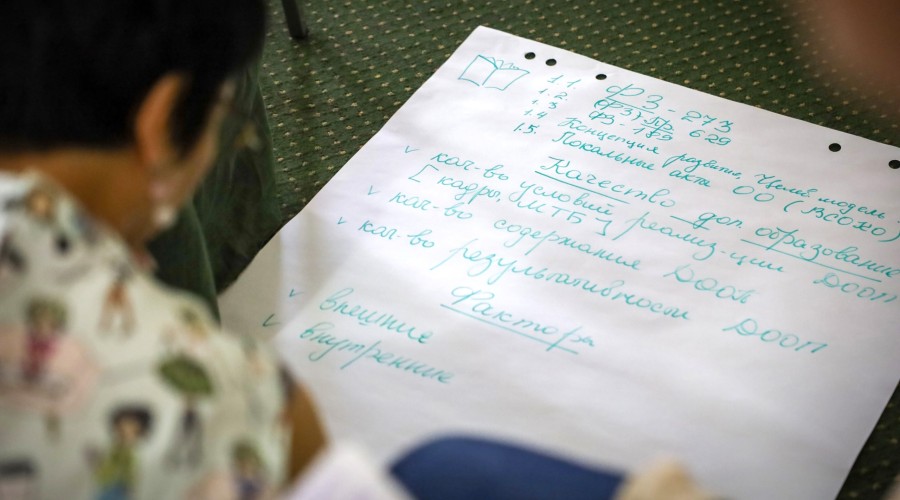 1.1. ФЗ - 273
1.2. (ФЗ) Пр. 629
1.3 ФЗ - 189
1.4 Концепция развития, Целев. модель
1.5. Локальные акты ОО (ВСОКО)
Качество доп. образование
✓ кач-во условий реализ-ции ДООП
[кадры, МТБ]
✓ кач-во содержания ДООП
✓ кач-во результативности ДООП
Факторы
✓ внешние
✓ внутренние